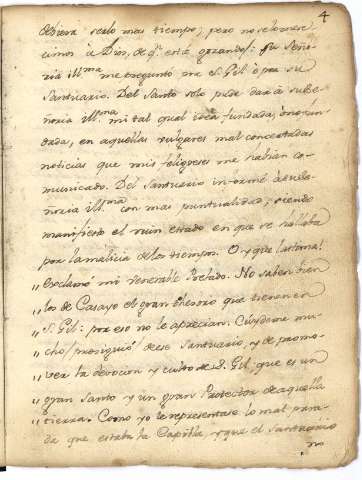 4
debiera serlo mas tiempo, pero no lo mere-
cimos à Dios, de q.e está gozando): Su Seño-
ria ill.ma me preguntó por S. Gil, è por su
Santuario. Del Santo solo pude dar à su Se-
ñoria ill.ma mi tal qual idea fundada, ò no fun-
dada, en aquellas vulgares mal concertadas
noticias que mis feligreses me habian co-
municado. Del Santuario informé à su Se-
ñoria ill.ma con mas puntualidad, siendo
manifiesto el ruin estado en que se hallaba
por la malicia de los tiempos. O, y que lastima!
„ exclamó mi Venerable Prelado. No saben bien
„ los de Casayo el gran thesoro que tienen en
„ S. Gil: por eso no le aprecian. Cuydeme mu-
„ cho (prosiguió) de ese Santuario, y de promo-
„ ver la devocion y culto de S. Gil; que es un
„ gran Santo y un gran Protector de aquella
„ tierra. Como yo le representase lo mal para-
da que estaba la Capilla, y que el Santuario
no